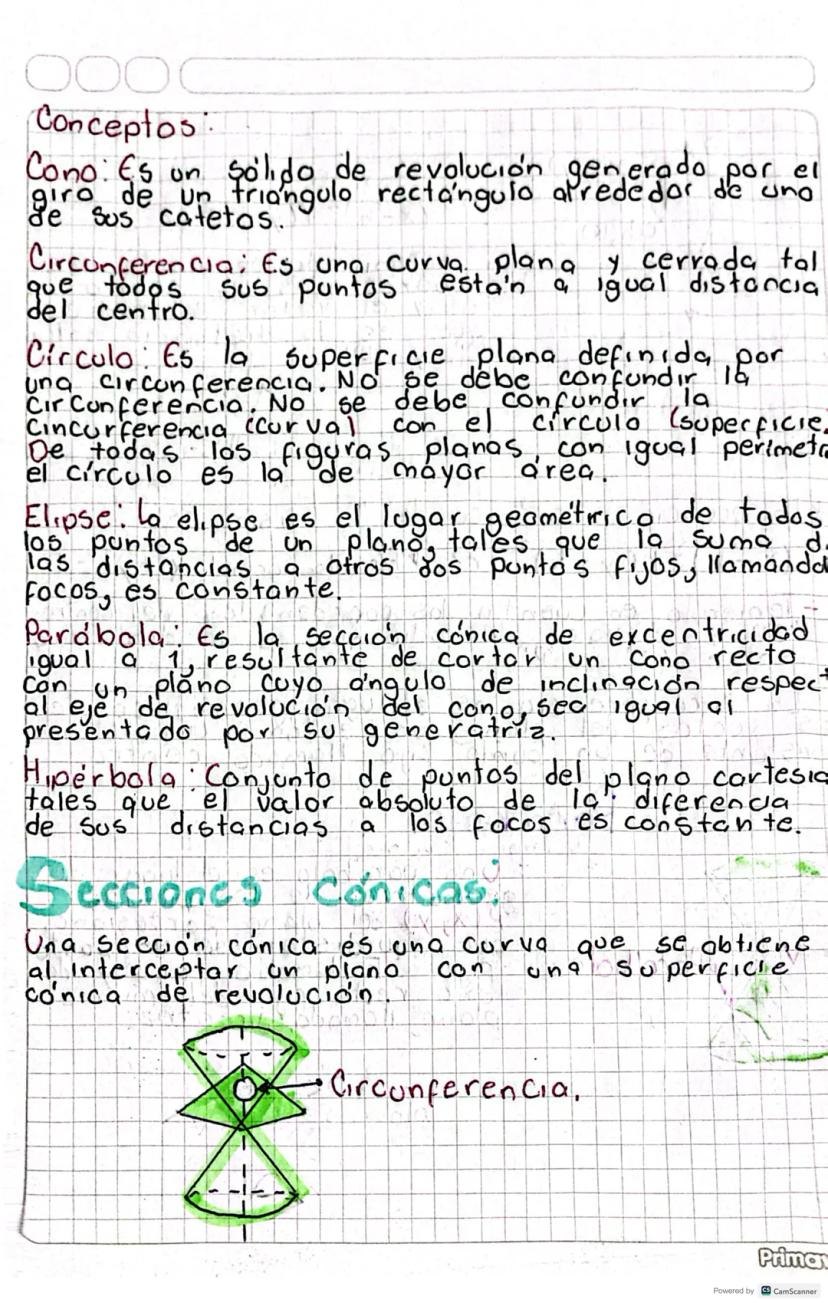 Conceptos:
Cono: Es un sólido de revolución generado por el
giro de un triángulo rectángulo alrededor de uno
de sus catetos.
Circunferencia: Es una curva plana y cerrada tal
que todos sus puntos están a igual distancia
del centro.
Círculo: Es la superficie plana definida por
una circunferencia. No se debe confundir la
circonferencia. No se debe confundir la
cincurferencia (curva) con el círculo (superficie.
De todas las figuras planas, con igual perimetr
el círculo es la de mayor área.
Elipse: La elipse es el lugar geométrico de todos
los puntos de un plano, tales que la suma d
las distancias a otros dos puntos fijos, llamando
focos, es constante.
Parábola: Es la sección cónica de excentricidad
igual a 1, resultante de cortar un cono recto
con un plano cuyo ángulo de inclinación respect
al eje de revolución del cono, sea igual al
presentado por su generatriz.
Hipérbola: Conjunto de puntos del plano cartesia
tales que el valor absoluto de la diferencia
de sus distancias a los focos es constante.
Secciones cónicas:
Una sección cónica es una curva que se obtiene
al interceptar un plano con una superficie
cónica de revolución.
Circunferencia.
Primav
Powered by CS CamScanner